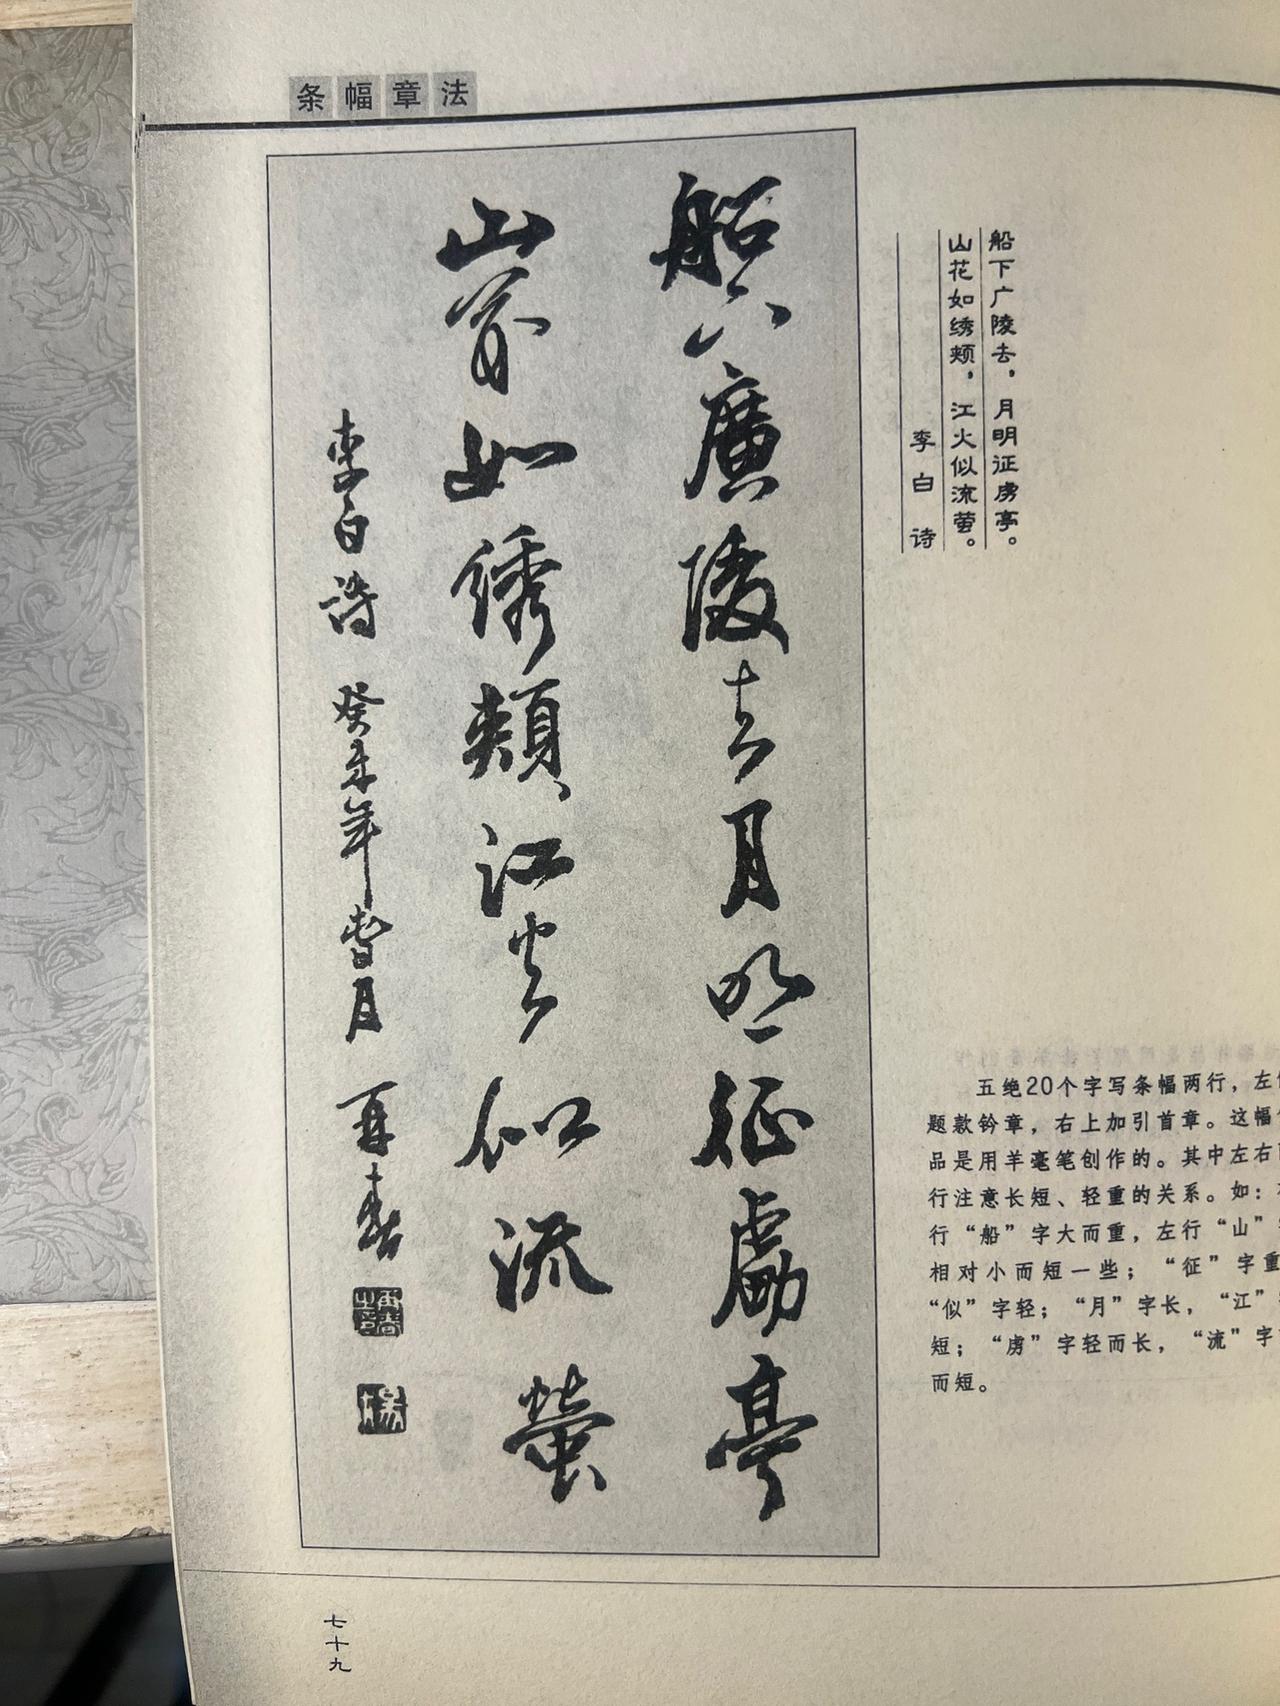 条幅章法
船下廣陵去月明征虜亭
山花如绣頰江火似流萤
李白诗 癸未年春月 再春
船下广陵去，月明征虏亭。
山花如绣颊，江火似流萤。
李白 诗
五绝20个字写条幅两行，左
题款钤章，右上加引首章。这幅
品是用羊毫笔创作的。其中左右
行注意长短、轻重的关系。如：
行“船”字大而重，左行“山”
相对小而短一些；“征”字重
“似”字轻；“月”字长，“江”
短；“虏”字轻而长，“流”字
而短。
七十九